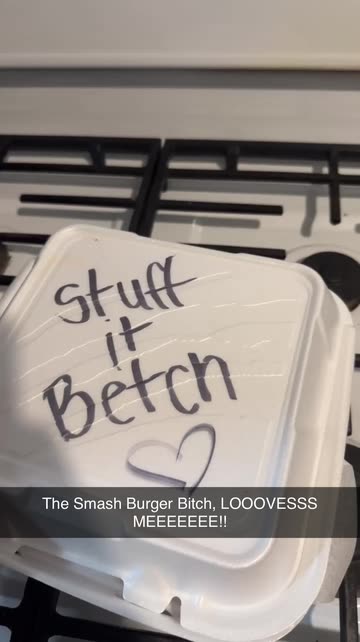 Stuff
it
Betch
The Smash Burger Bitch, LOOOVESSS
MEEEEEEE!!